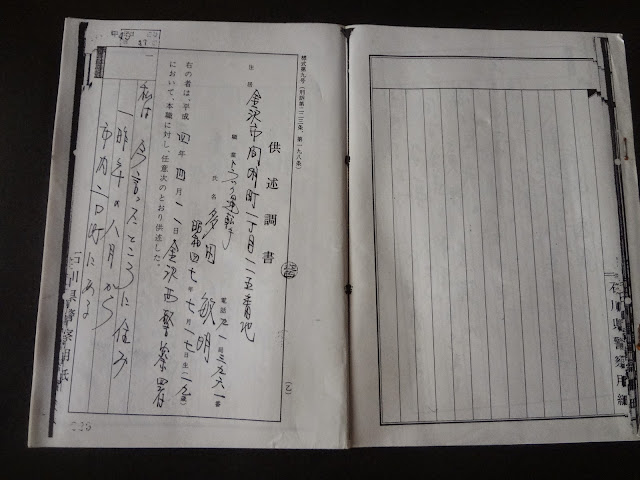 石川県警察用紙
様式第九号(刑訴第二二三条、第一九八条)
供述調書 (乙)
住居 金沢市間明町一丁目二一五番地
職業 トラック運転手 電話 局 番
氏名 敏明
昭和四七年七月一七日生(一九歳)
右の者は、平成四年四月 日金沢西警察署
において、本職に対し、任意次のとおり供述した。
一
私は 今言ったところに住み
一昨年の八月から
市内 町にある
石川県警察用紙